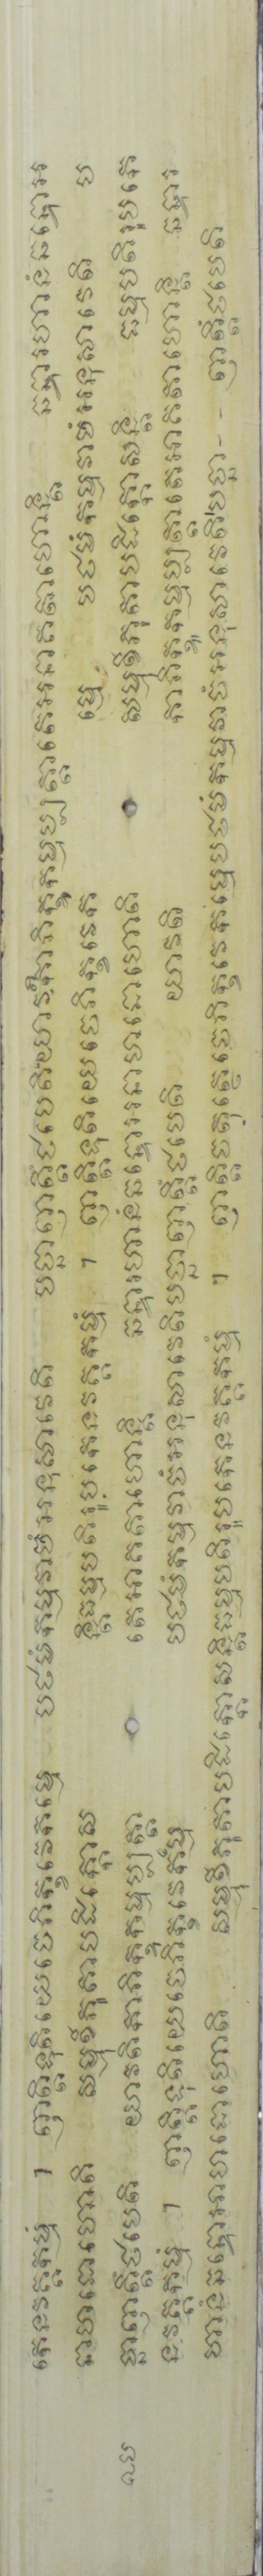 តេនវគ្គកម្មំ ។ ញត្តិទុតិយេចេភិក្ខវេកម្មេ បឋមំកម្មវាចំអនុសាវេតិ បច្ឆាញត្តិំឋបេតិ យាវតិកាភិក្ខូកម្មប្បត្តាតេអនាគតាហោន្តិ ឆន្ទារហានំឆន្ទោអ
នាហដោហោតិ សម្មុខីភូតាបដិក្កោស ន្តិធម្មបតិរូបកេនវគ្គកម្មំ ។ ញត្តិទុតិយេចេភិក្ខវេក ម្មេ បឋមំកម្មវាចំអនុសាវេតិ ប
ច្ឆាញត្តិំឋបេតិ យាវតិកាភិក្ខូកម្មប្បត្តា តេអាគតាហោន្តិ ឆន្ទារហានំឆន្ទោអនាហដោហោតិ សម្មុខីភូតាបដិក្កោសន្តិ ធម្មបតិរូបកេ
នវគ្គកម្មំ ។ ញត្តិទុតិយេចេភិក្ខវេកម្មេ បឋមំកម្មវាចំអនុសាវេតិបច្ឆាញត្តិំឋបេតិ យាវតិ កាភិក្ខូកម្មប្បត្តាតេអាគតាហោន្តិ ឆន្ទារ
ហានំឆន្ទោអាហដោហោតិ សម្មុខីភូតាបដិក្កោសន្តិធម្មបតិរូបកេនវគ្គកម្មំ ។ ញត្តិចតុត្ថេចេភិក្ខវេកម្មេបឋមំកម្មវាចំអនុសាវេតិបច្ឆា-- ញត្តិំឋបេតិ